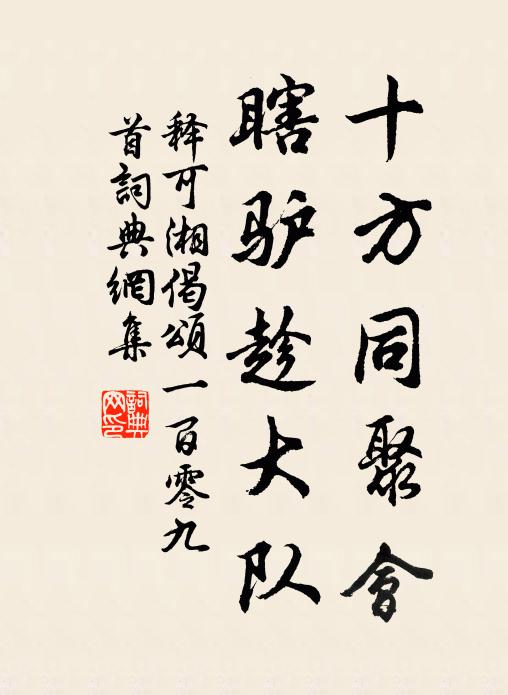 十方同聚會
瞎驴趁大队
释可湘偈頌一百零九
首詞典網集
詞典网印